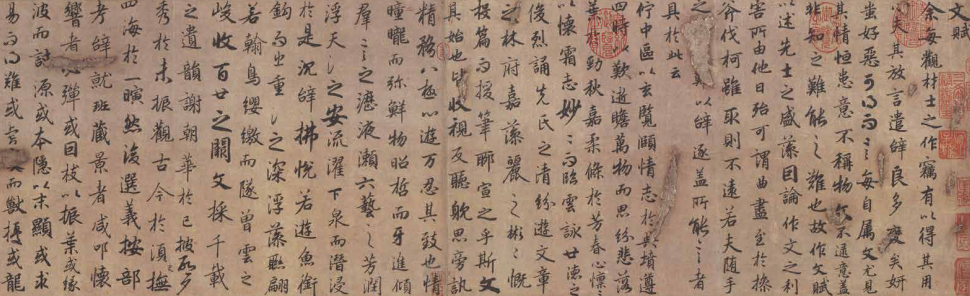 文賦
余每觀材士之作竊有以得其用
心夫其放言遣辭良多變矣妍
蚩好惡可得而言每自屬文尤見
其情恒患意不稱物文不逮意蓋
非知之難能之難也故作文賦
以述先士之盛藻因論作文之利
害所由他日殆可謂曲盡至於操
斧伐柯雖取則不遠若夫隨手
難以辭逐蓋所能言者
具於此云
佇中區以玄覽頤情志於典墳遵
四時以歎逝瞻萬物而思紛悲落
葉於勁秋嘉柔條於芳春心懍懍
以懷霜志妙妙而臨雲詠世德之
俊烈誦先民之清芬遊文章
之林府嘉藻麗之彬彬慨
投篇而援筆聊宣之乎斯文
其始也皆收視反聽耽思旁訊
精騖八極心遊万仞其致也情
曈曨而彌鮮物昭晢而互進傾
羣言之瀝液漱六藝之芳潤
浮天淵之安流濯下泉而潛浸
於是沉辭怫悅若遊魚銜
鈎而出重淵之深浮藻聯翩
若翰鳥纓繳而墜曾雲之
峻收百世之闕文採千載
之遺韻謝朝華於已披啟夕
秀於未振觀古今於須臾撫
四海於一瞬然後選義按部
考辭就班藏景者咸叩懷
響者必彈或因枝以振葉或緣
波而討源或本隱以末顯或求
易而得難或言而獸擾或龍